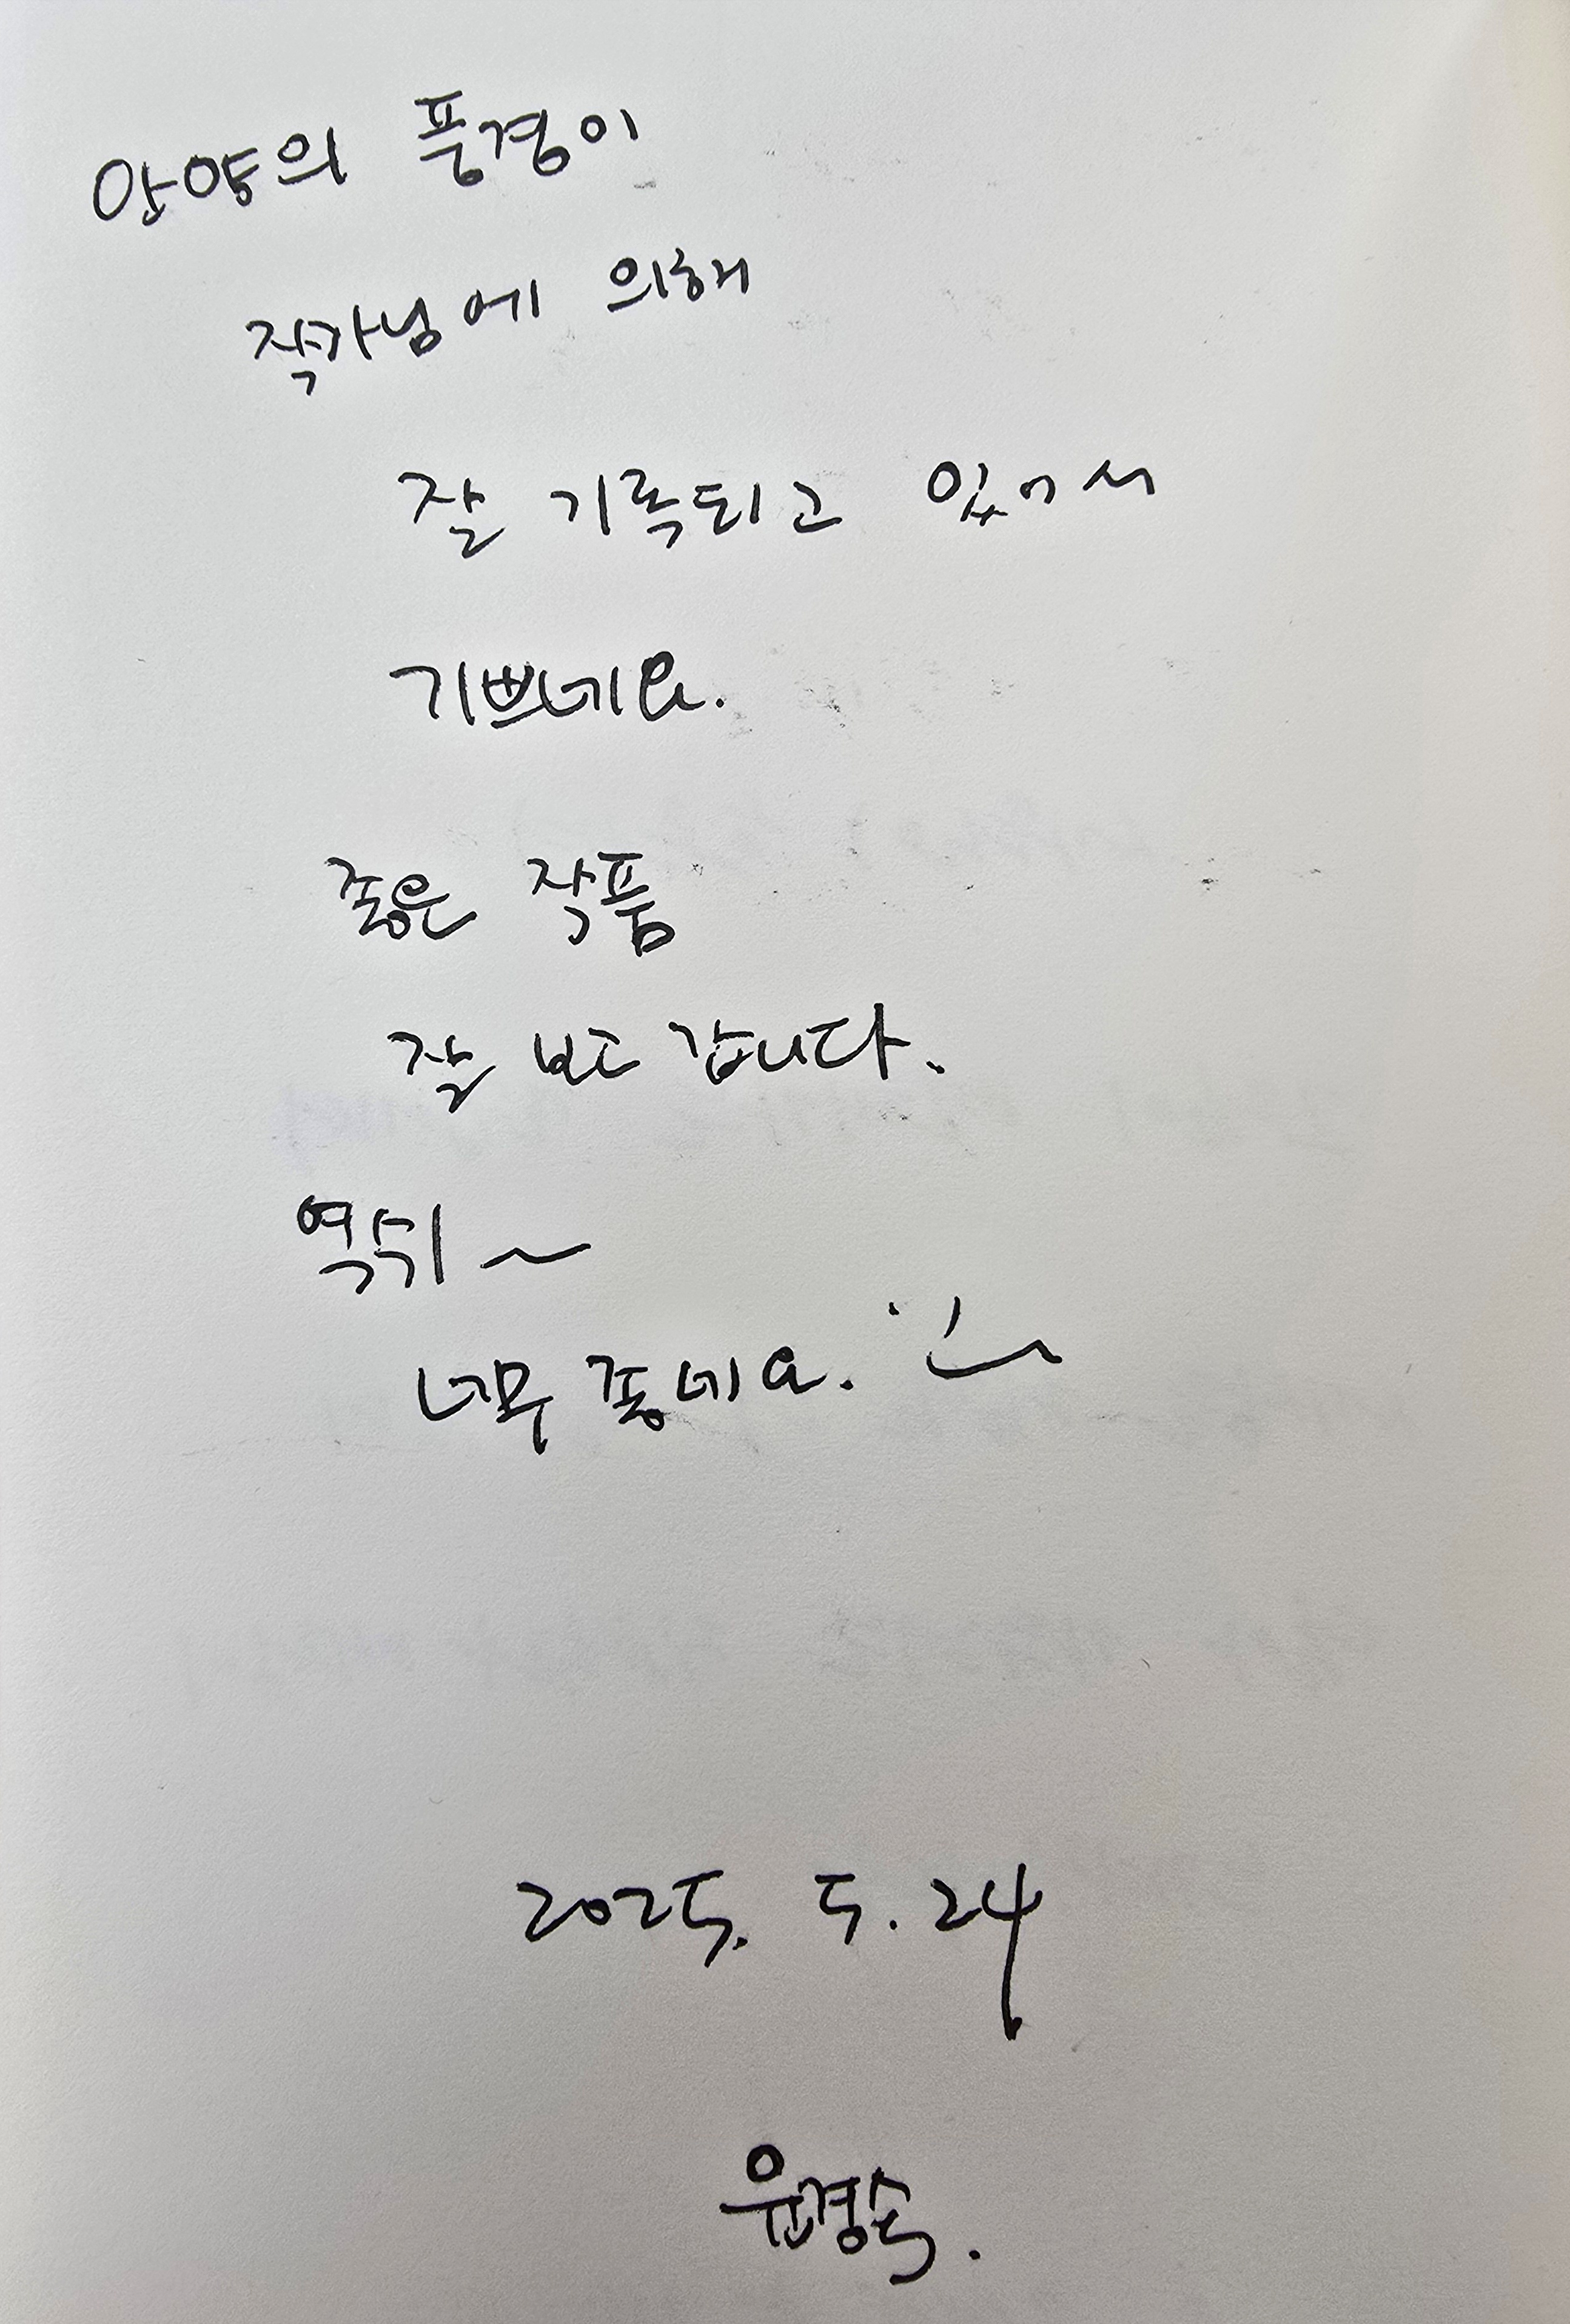 안양의 풍경이
작가님에 의해
잘 기록되고 있어서
기쁘네요.
좋은 작품
잘 보고 갑니다.
역쉬~
너무 좋네요.
2025. 5. 24
유경숙.